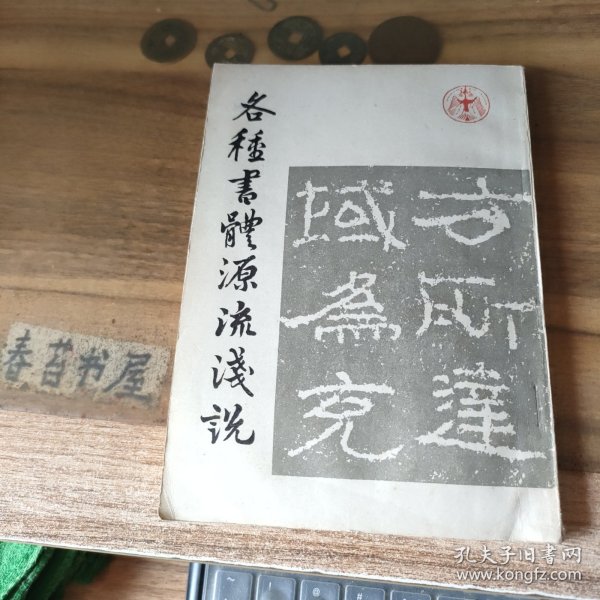 各種書體源流淺說
方所達
域為充
春苔书屋
孔夫子旧书网
www.kongfz.com